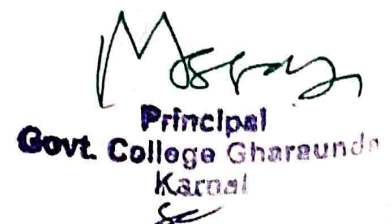 Principal
Govt. College Gharaunda
Karnal